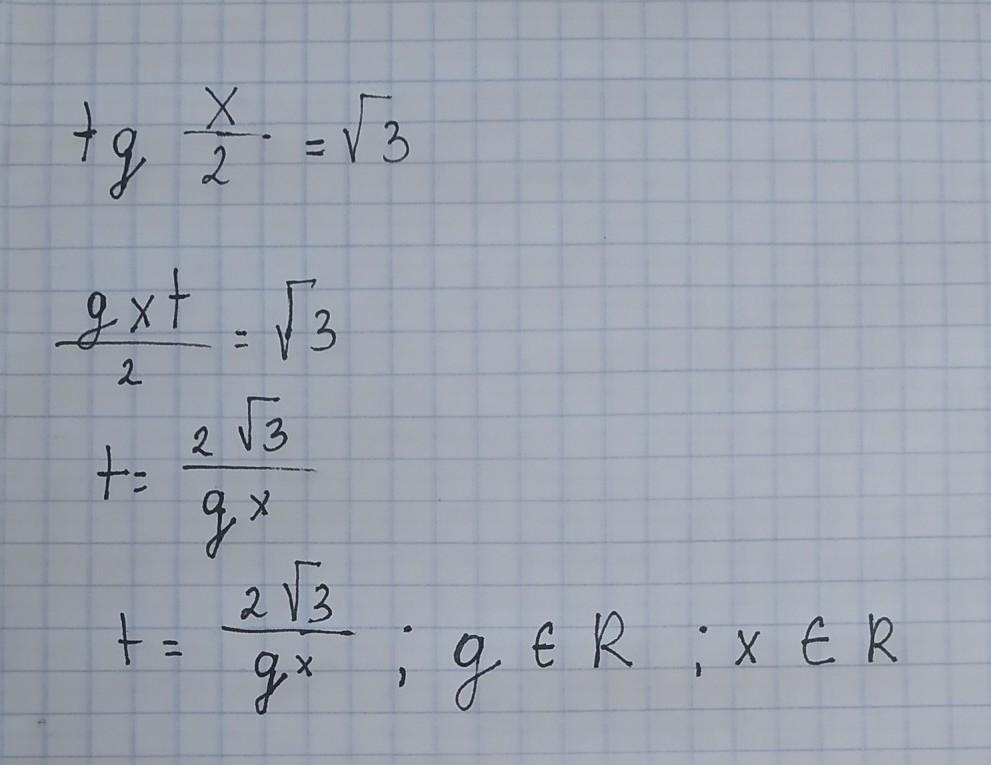 tg x/2 = √3
gxt/2 = √3
t = 2√3/gx
t = 2√3/gx ; g ∈ R ; x ∈ R